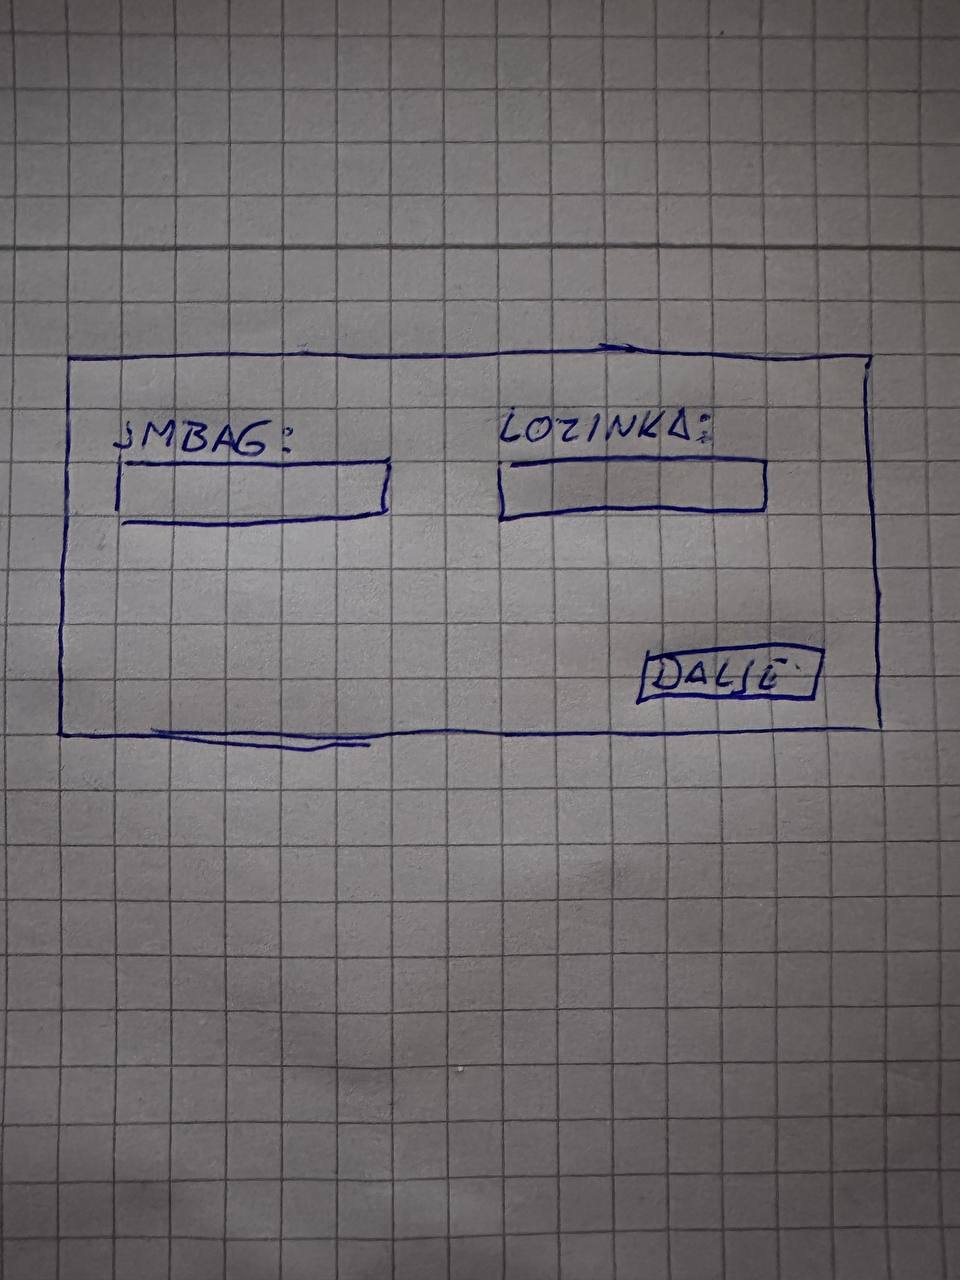 JMBAG:
LOZINKA:
DALJE